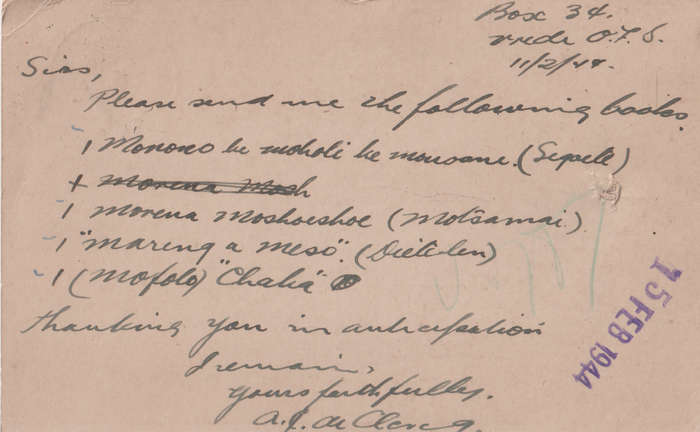 Box 34.
Vrede O.F.S.
11/2/44.
Sirs,
Please send me the following books
1 Monono ke moholi ke mouoane. (Segoete)
1 Morena Mosh
1 Morena Moshoeshoe (Motšamai)
1 "Mareng a meso". (Dieterlen)
1 (Mofolo) "Chaka"
Thanking you in anticipation
I remain,
Yours faithfully.
A. J. de Clercq.
15 FEB 1944